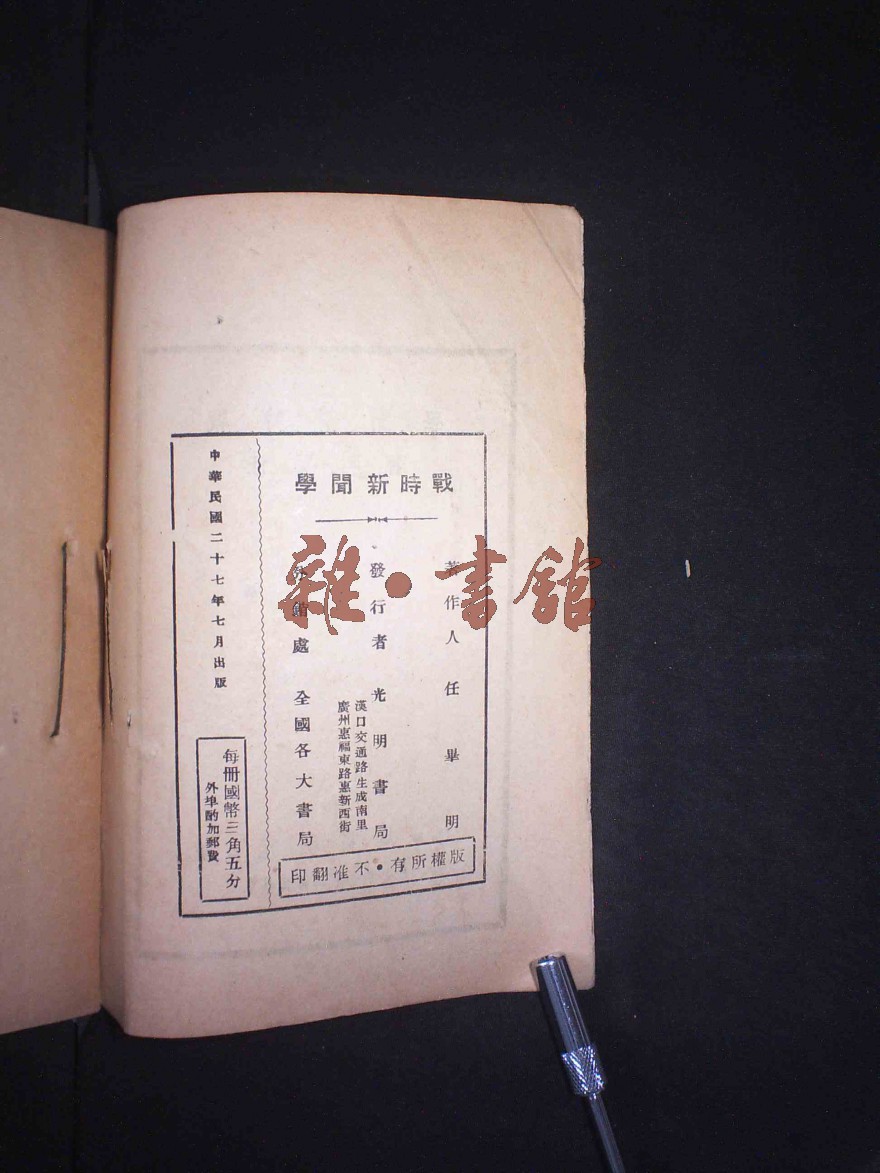 戰時新聞學
著作人 任畢明
發行者 光明書局
漢口交通路生成南里
廣州惠福東路惠新西街
分銷處 全國各大書局
版權所有•不准翻印
中華民國二十七年七月出版
每冊國幣三角五分
外埠酌加郵費
雜•書館